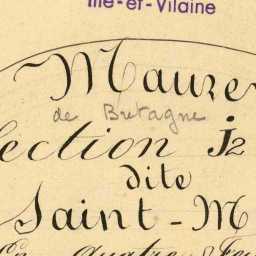 Ille-et-Vilaine
Maure
de Bretagne
ection J2
dite
Saint-M
En quatre Feu